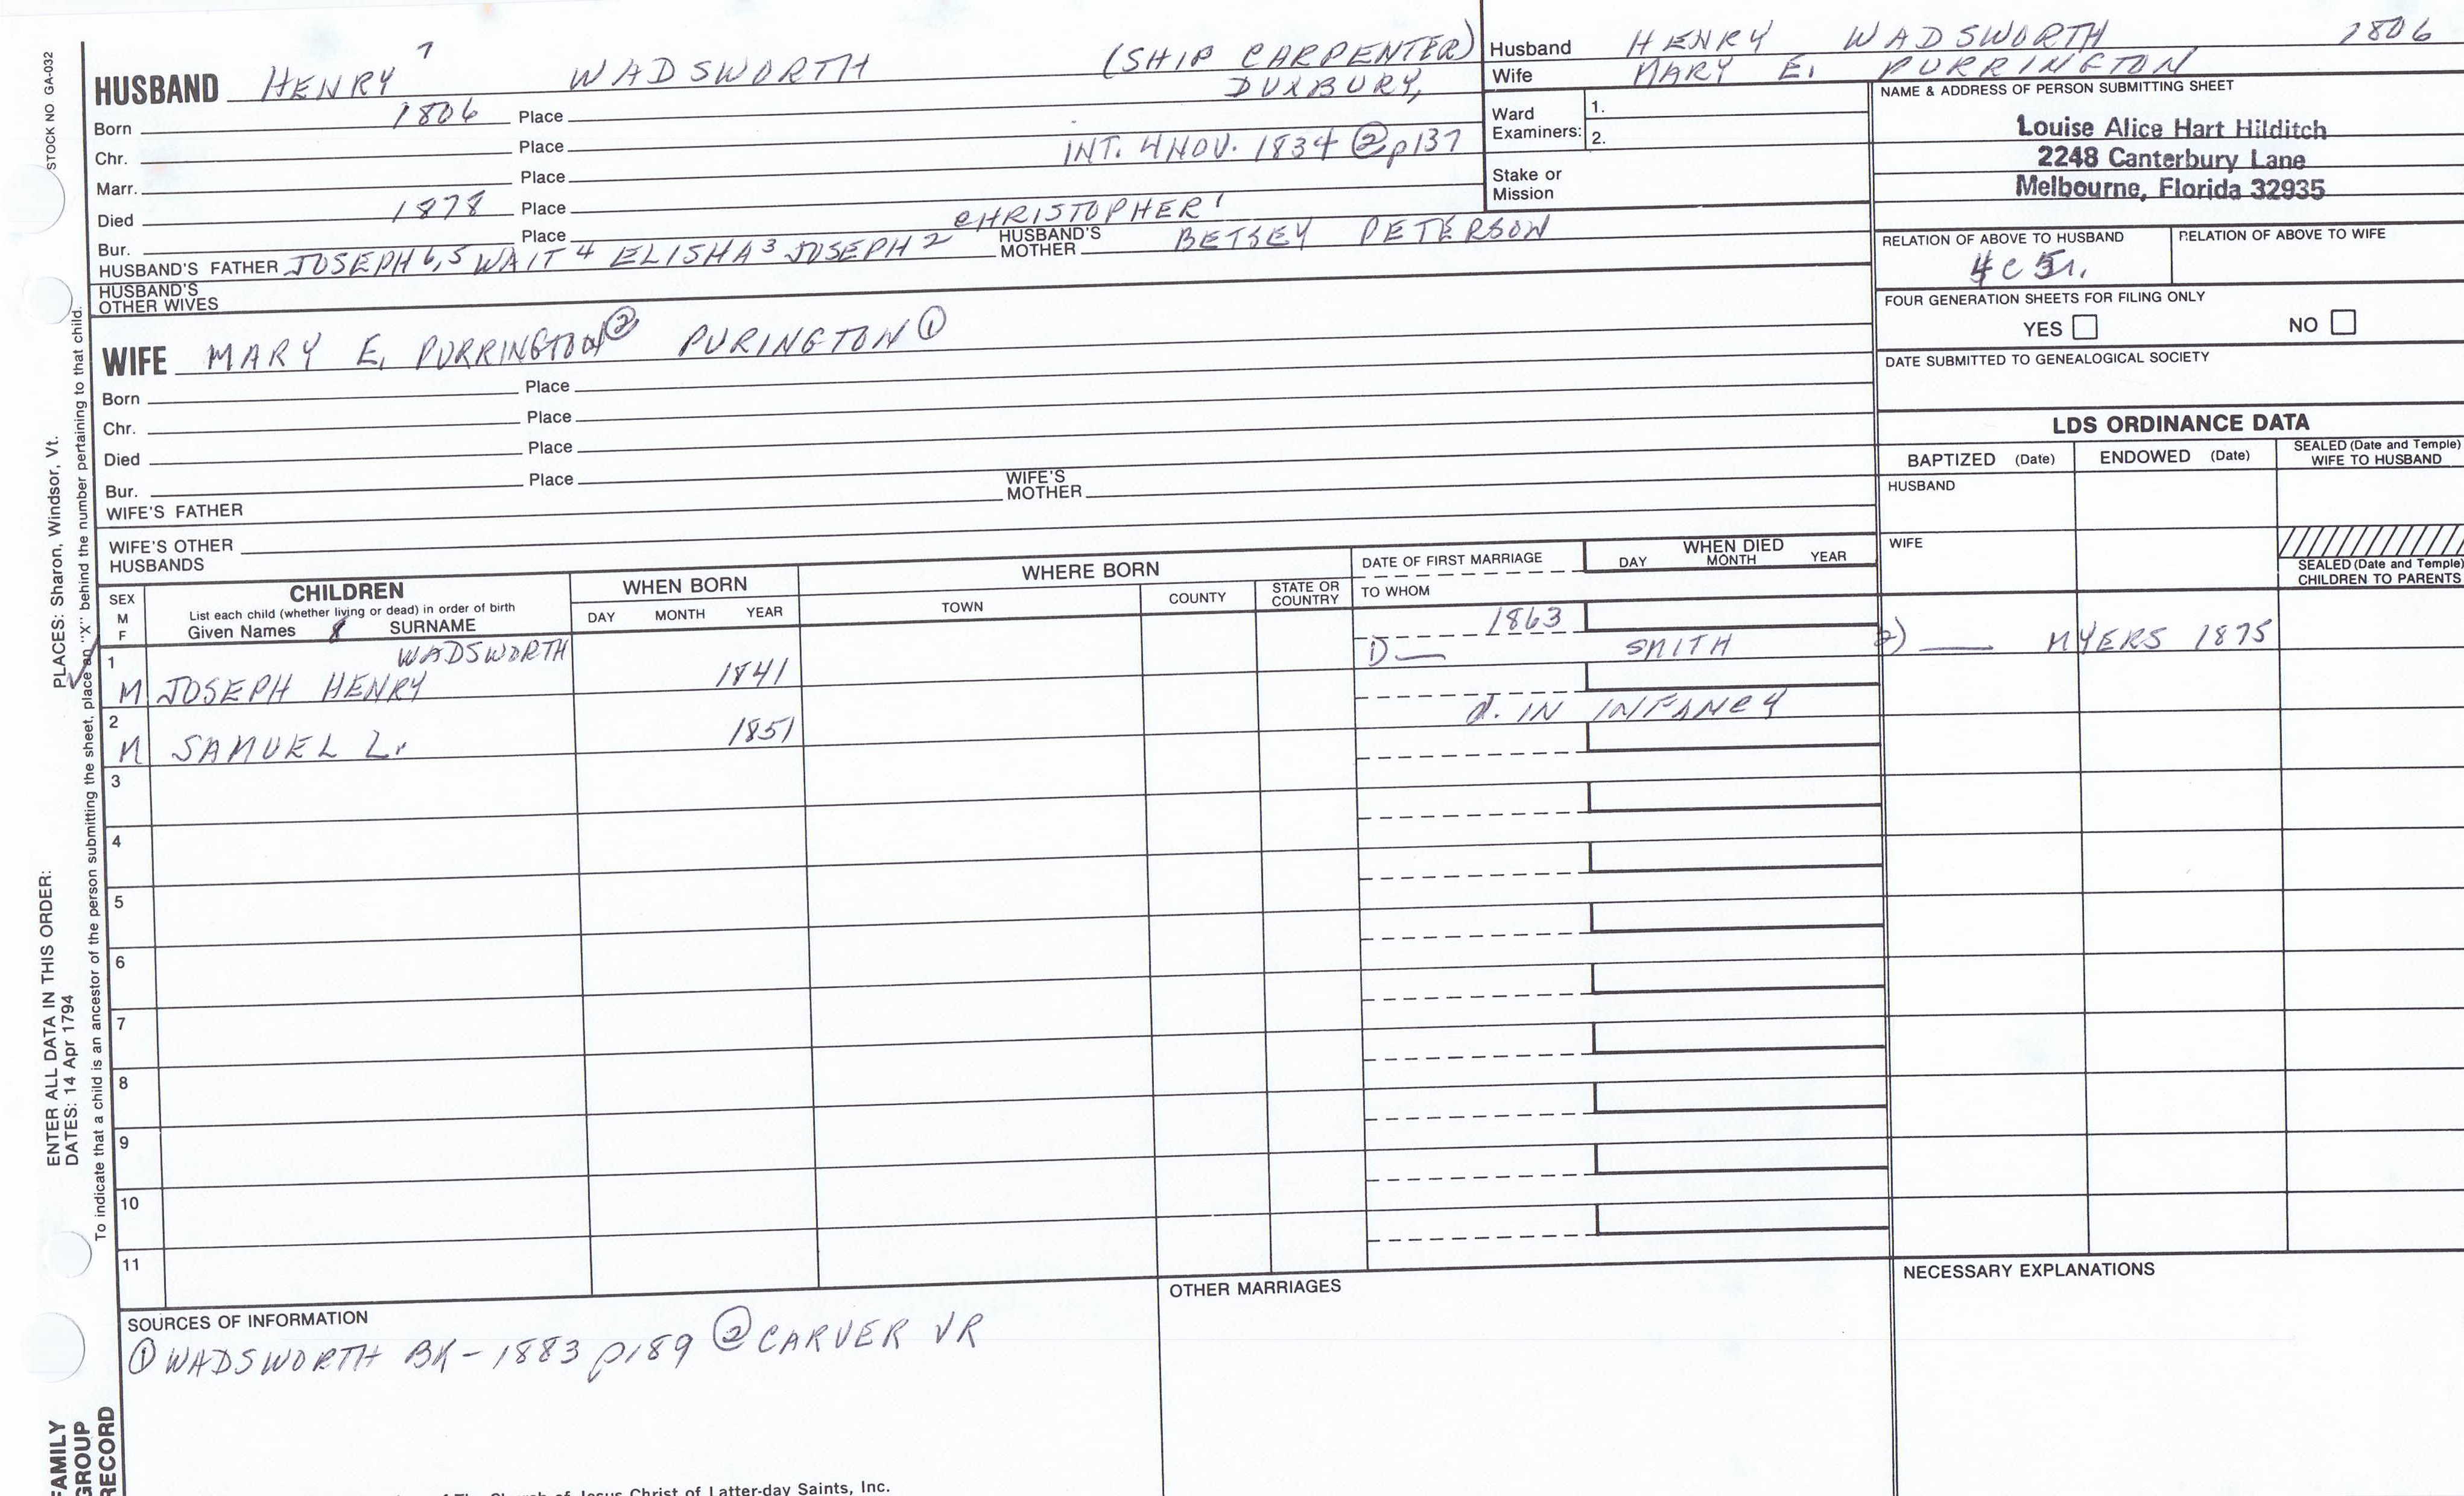 STOCK NO GA-032
HUSBAND HENRY 7 WADSWORTH (SHIP CARPENTER)
Born 1806 Place DUXBURY,
Chr. Place
Marr. Place INT. 4 NOV. 1834 ② p137
Died 1878 Place
Bur. Place
HUSBAND'S FATHER JOSEPH 6,5 WAIT 4 ELISHA 3 JOSEPH 2 CHRISTOPHER 1 HUSBAND'S MOTHER BETSEY PETERSON
HUSBAND'S OTHER WIVES
WIFE MARY E. PURRINGTON ② PURINGTON ①
Born Place
Chr. Place
Died Place
Bur. Place
WIFE'S FATHER WIFE'S MOTHER
WIFE'S OTHER HUSBANDS
Husband HENRY WADSWORTH 1806
Wife MARY E. PURRINGTON
Ward Examiners: 1.
2.
Stake or Mission
NAME & ADDRESS OF PERSON SUBMITTING SHEET
Louise Alice Hart Hilditch
2248 Canterbury Lane
Melbourne, Florida 32935
RELATION OF ABOVE TO HUSBAND RELATION OF ABOVE TO WIFE
FOUR GENERATION SHEETS FOR FILING ONLY
YES NO
DATE SUBMITTED TO GENEALOGICAL SOCIETY
LDS ORDINANCE DATA
BAPTIZED (Date) ENDOWED (Date) SEALED (Date and Temple) WIFE TO HUSBAND
HUSBAND
WIFE
SEALED (Date and Temple) CHILDREN TO PARENTS
SEX M F
CHILDREN
List each child (whether living or dead) in order of birth
Given Names SURNAME
WHEN BORN
DAY MONTH YEAR
WHERE BORN
TOWN COUNTY STATE OR COUNTRY
DATE OF FIRST MARRIAGE
TO WHOM
WHEN DIED
DAY MONTH YEAR
1 WADSWORTH 1863
M JOSEPH HENRY 1841 D— SMITH 2) — MYERS 1875
2 d. IN INFANCY
M SAMUEL L. 1851
3
4
5
6
7
8
9
10
11
SOURCES OF INFORMATION
① WADSWORTH BK - 1883 p189 ② CARVER VR
OTHER MARRIAGES
NECESSARY EXPLANATIONS
of The Church of Jesus Christ of Latter-day Saints, Inc.
ENTER ALL DATA IN THIS ORDER:
DATES: 14 Apr 1794
PLACES: Sharon, Windsor, Vt.
To indicate that a child is an ancestor of the person submitting the sheet, place an "X" behind the number pertaining to that child.
FAMILY
GROUP
RECORD